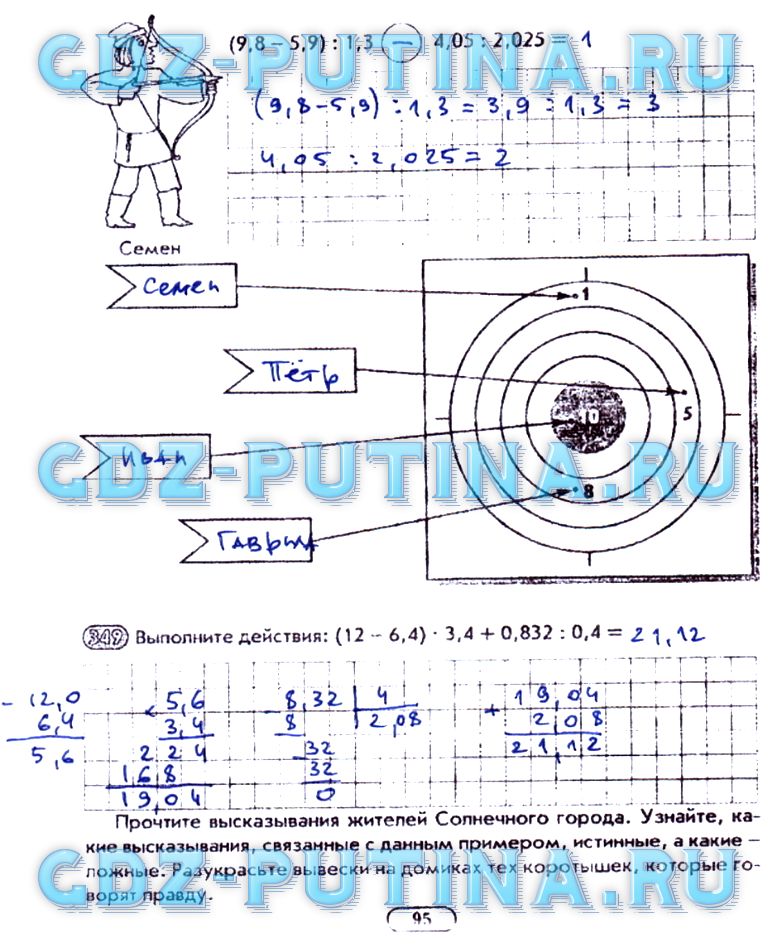 (9,8 – 5,9) : 1,3 – 4,05 : 2,025 = 1
GDZ-PUTINA.RU
(9,8-5,9) : 1,3 = 3,9 : 1,3 = 3
4,05 : 2,025 = 2
Семен
Семен
1
Пётр
10
5
Иван
GDZ-PUTINA.RU
8
Гаврила
349 Выполните действия: (12 – 6,4) · 3,4 + 0,832 : 0,4 = 21,12
- 12,0 × 5,6 - 8,32 4 + 19,04
6,4 3,4 8 2,08 2,08
5,6 224 - 32 21,12
168 32
19,04 0
Прочтите высказывания жителей Солнечного города. Узнайте, ка-
кие высказывания, связанные с данным примером, истинные, а какие –
ложные. Разукрасьте вывески на домиках тех коротышек, которые го-
ворят правду.
GDZ-PUTINA.RU
95